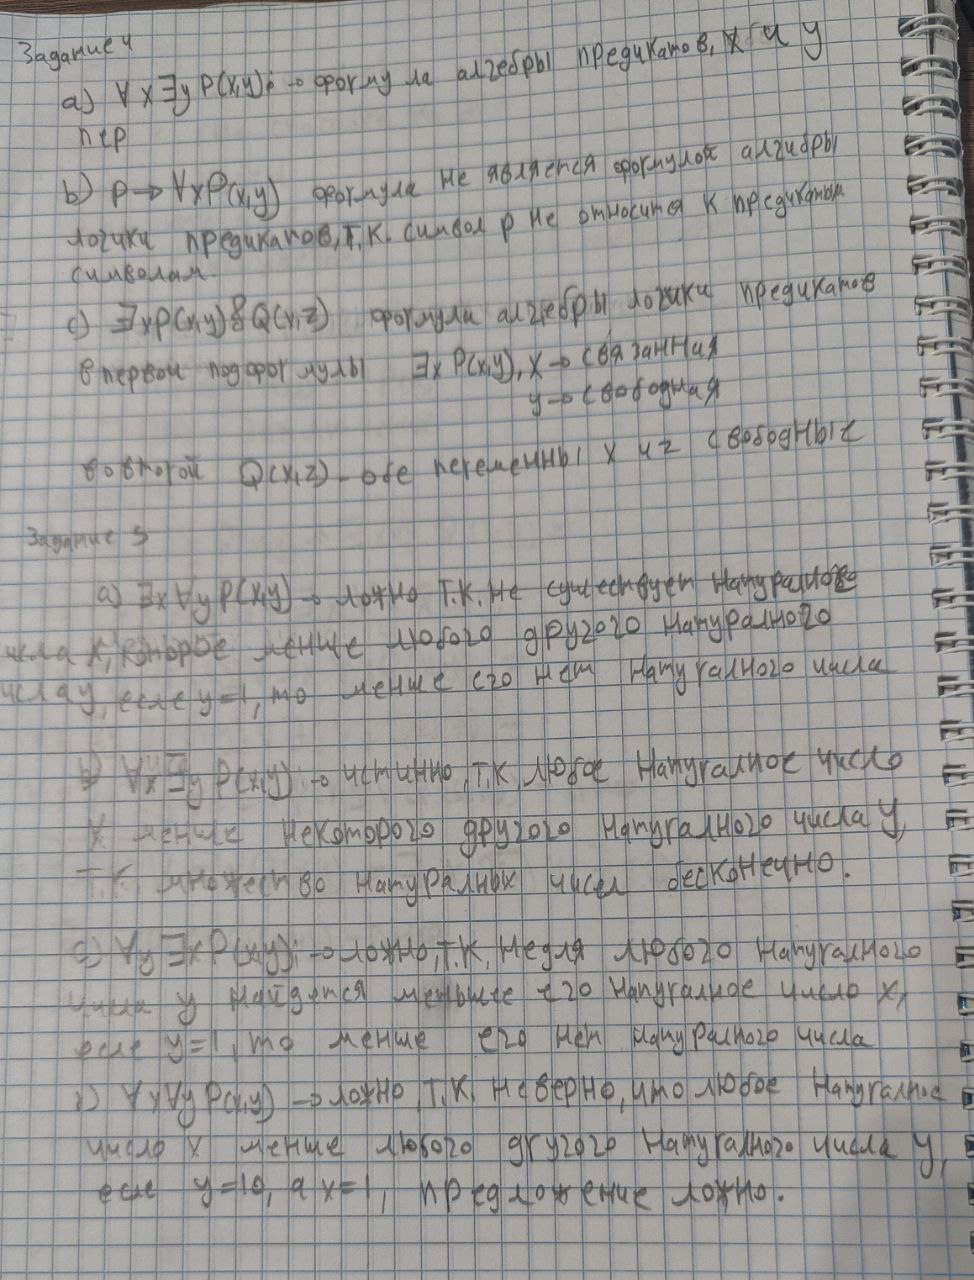 Задание 4
a) ∀x∃y P(x,y); → формула алгебры предикатов, x и y
пер
b) p → ∀xP(x,y) формула не является формулой алгибры
логики предикатов, т.к. символ p не относится к предикатным
символам.
c) ∃xP(x,y)&Q(x,z) формули алгебры логики предикатов
в первой подформулы ∃x P(x,y), x → связанная
y → свободная
во второй Q(x,z) - обе переменны x и z свободные
Задание 5
a) ∃x∀y P(x,y) → ложно т.к. не существует натуралного
числа x, которое менше любого другого натуралного
числа y, есле y=1, то менше его нет натуралного числа
∀x∃y P(x,y); → истинно, т.к любое натуралное число
x менше некоторого другого натуралного числа y,
т.к. множество натуралных чисел бесконечно.
∀y∃x P(x,y); → ложно, т.к. не для любого натуралного
числа y найдется меньшее его натуралное число x,
есле y=1, то менше его нет натуралного числа
∀x∀y P(x,y) → ложно, т.к. не верно, что любое натуралное
число x менше любого другого натуралного числа y,
есле y=10, а x=1, предложение ложно.